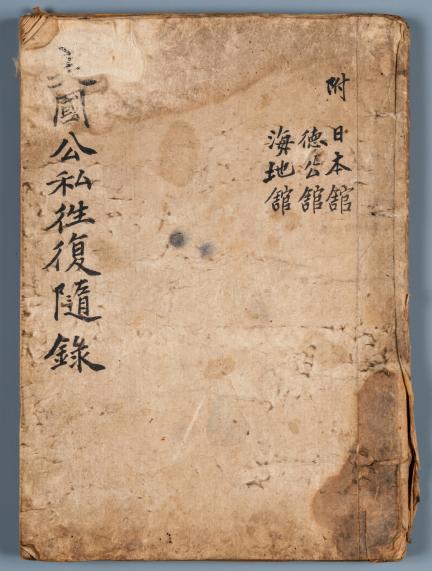 附
日本館
徳公館
海地館
國公私徃復隨錄